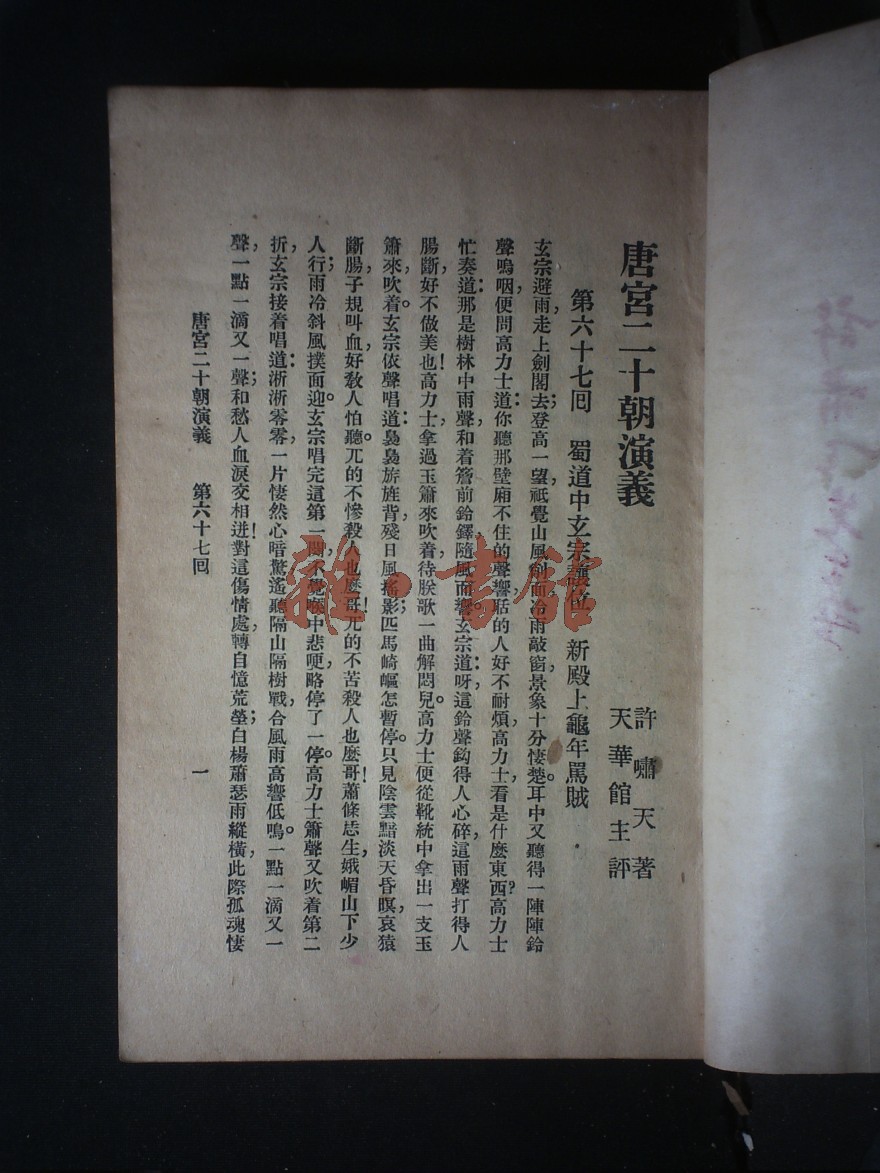 唐宮二十朝演義
許嘯天著
天華館主評
第六十七回　蜀道中玄宗讓位　新殿上龜年罵賊
玄宗避雨，走上劍閣去；登高一望，祇覺山風劍面，冷雨敲窗，景象十分悽楚。耳中又聽得一陣陣鈴
聲嗚咽，便問高力士道：你聽那壁廂不住的聲響，聒的人好不耐煩，高力士，看是什麼東西？高力士
忙奏道：那是樹林中雨聲，和着簷前鈴鐸，隨風而響。玄宗道：呀，這鈴聲鈎得人心碎，這雨聲打得人
腸斷，好不做美也！高力士，拿過玉簫來吹着，待朕歌一曲解悶兒。高力士便從靴統中拿出一支玉
簫來吹着。玄宗依聲唱道：裊裊旂旌，背殘日，風搖影；匹馬崎嶇怎暫停。只見陰雲黯淡天昏暝，哀猿
斷腸，子規叫血，好敎人怕聽。兀的不慘殺人也麼哥！兀的不苦殺人也麼哥！蕭條恁生，娥嵋山下少
人行；雨冷斜風撲面迎。玄宗唱完這第一闋，不覺喉中悲哽，略停了一停。高力士簫聲又吹着第二
折，玄宗接着唱道：淅淅零零，一片悽然心暗驚，遙聽隔山隔樹，戰合風雨，高響低鳴。一點一滴又一
聲，一點一滴又一聲；和愁人血淚交相迸！對這傷情處，轉自憶荒塋；白楊蕭瑟雨縱橫，此際孤魂悽
唐宮二十朝演義　第六十七回　一
雜·書館